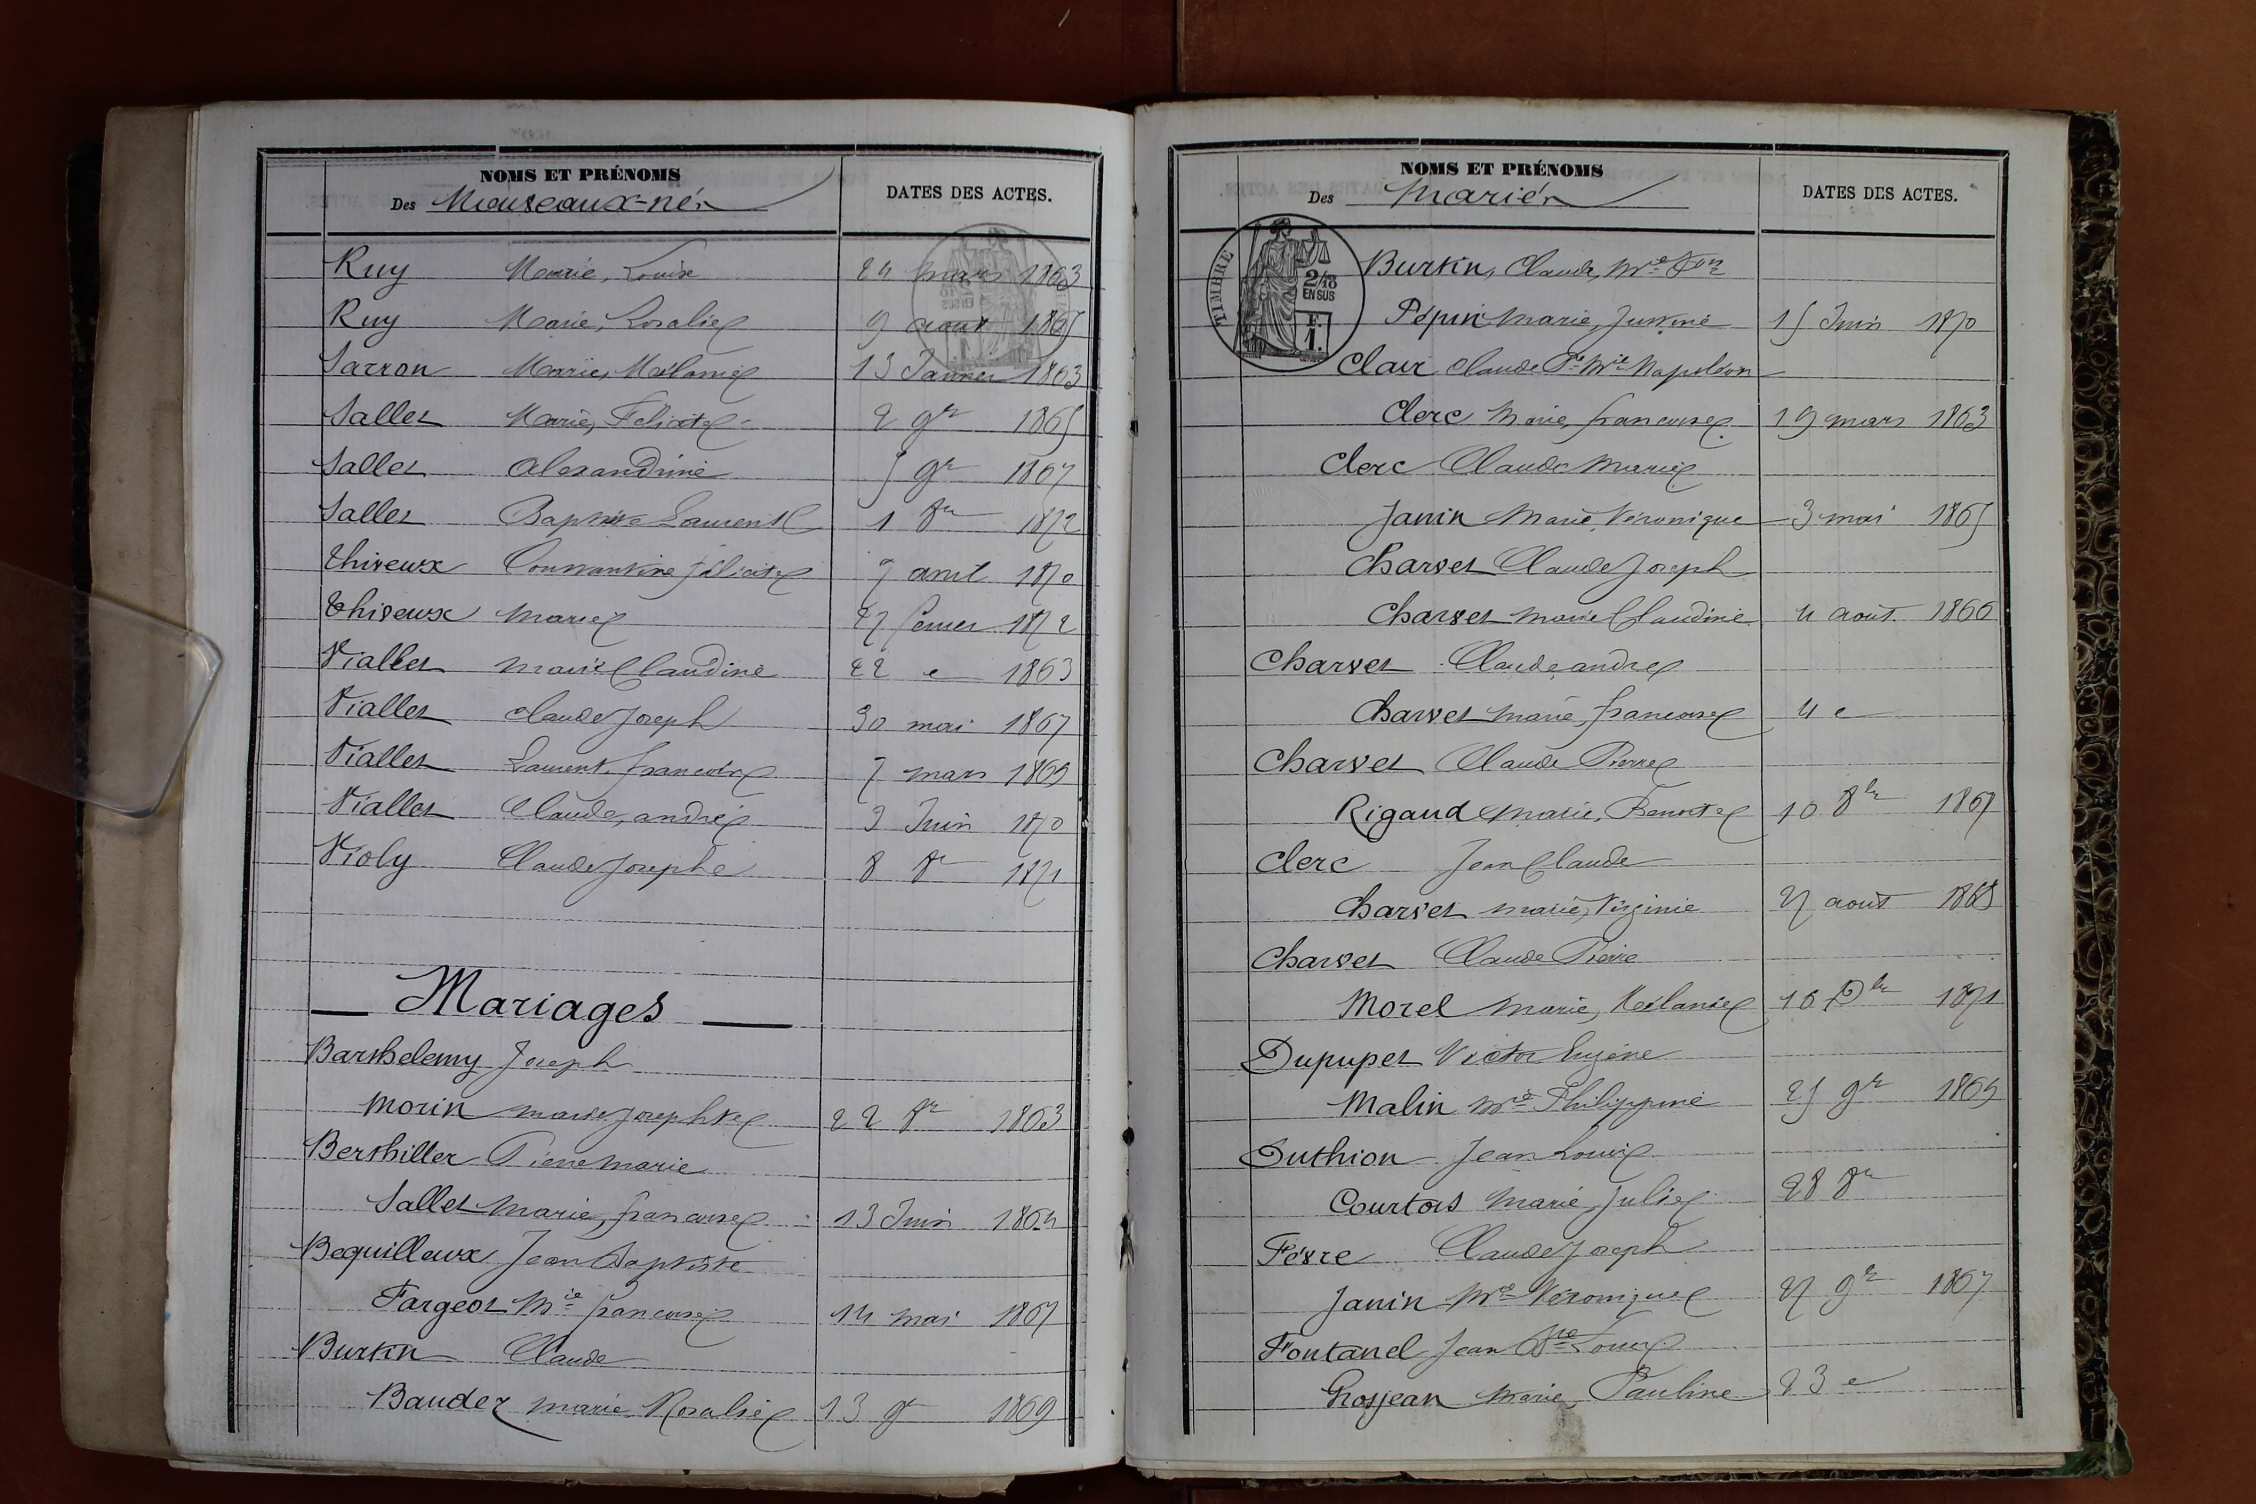 NOMS ET PRÉNOMS
Des Nouveaux-nés
DATES DES ACTES.
Ruy Marie, Louise 24 mars 1863
Ruy Marie, Rosalie 9 aout 1865
Sarron Marie, Mélanie 13 Janvier 1863
Sallet Marie, Félicité 2 9bre 1865
Sallet Alexandrine 5 9bre 1867
Sallet Baptiste Laurent 1 Xbre 1872
Thiveux Constantine félicité 7 avril 1870
Thiveux Marie 27 fevrier 1872
Viallet Marie Claudine 22 e 1863
Viallet Claude Joseph 30 mai 1867
Viallet Laurent françois 7 mars 1869
Viallet Claude, andré 3 Juin 1870
Violy Claude Joseph 8 Xbre 1871
Mariages
Barthelemy Joseph
Morin marie Josephte 22 Xbre 1863
Berthiller Pierre marie
Sallet Marie, françoise 13 Juin 1864
Bequilleux Jean Baptiste
Fargeot Mie françoise 14 mai 1867
Burtin Claude
Baudez marie Rosalie 13 9bre 1869
NOMS ET PRÉNOMS
Des Mariés
DATES DES ACTES.
TIMBRE
2/10
EN SUS
F.
1.
Burtin, Claude, Mie
Pépin Marie, Justine 15 Juin 1870
Clair Claude Pre Mie Napoléon
Clerc Marie françoise 19 mars 1863
Clerc Claude Marie
Janin Marie, Véronique 3 mai 1865
Charvet Claude Joseph
Charvet Marie Claudine 4 août 1866
Charvet Claude andre
Charvet marie, françoise 4 e
Charvet Claude Pierre
Rigaud Marie, Benoite 10 8bre 1867
Clerc Jean Claude
Charvet marie, Virginie 27 aout 1868
Charvet Claude Pierre
Morel Marie, Mélanie 16 1871
Dupupet Victor Eugène
Malin Mie Philippine 25 9bre 1864
Duthion Jean Louis
Courtois Marie Julie 28 Xbre
Fèvre Claude Joseph
Janin Mie Véronique 27 9bre 1867
Fontanel Jean Bte Louis
Grosjean Marie, Pauline 23 e